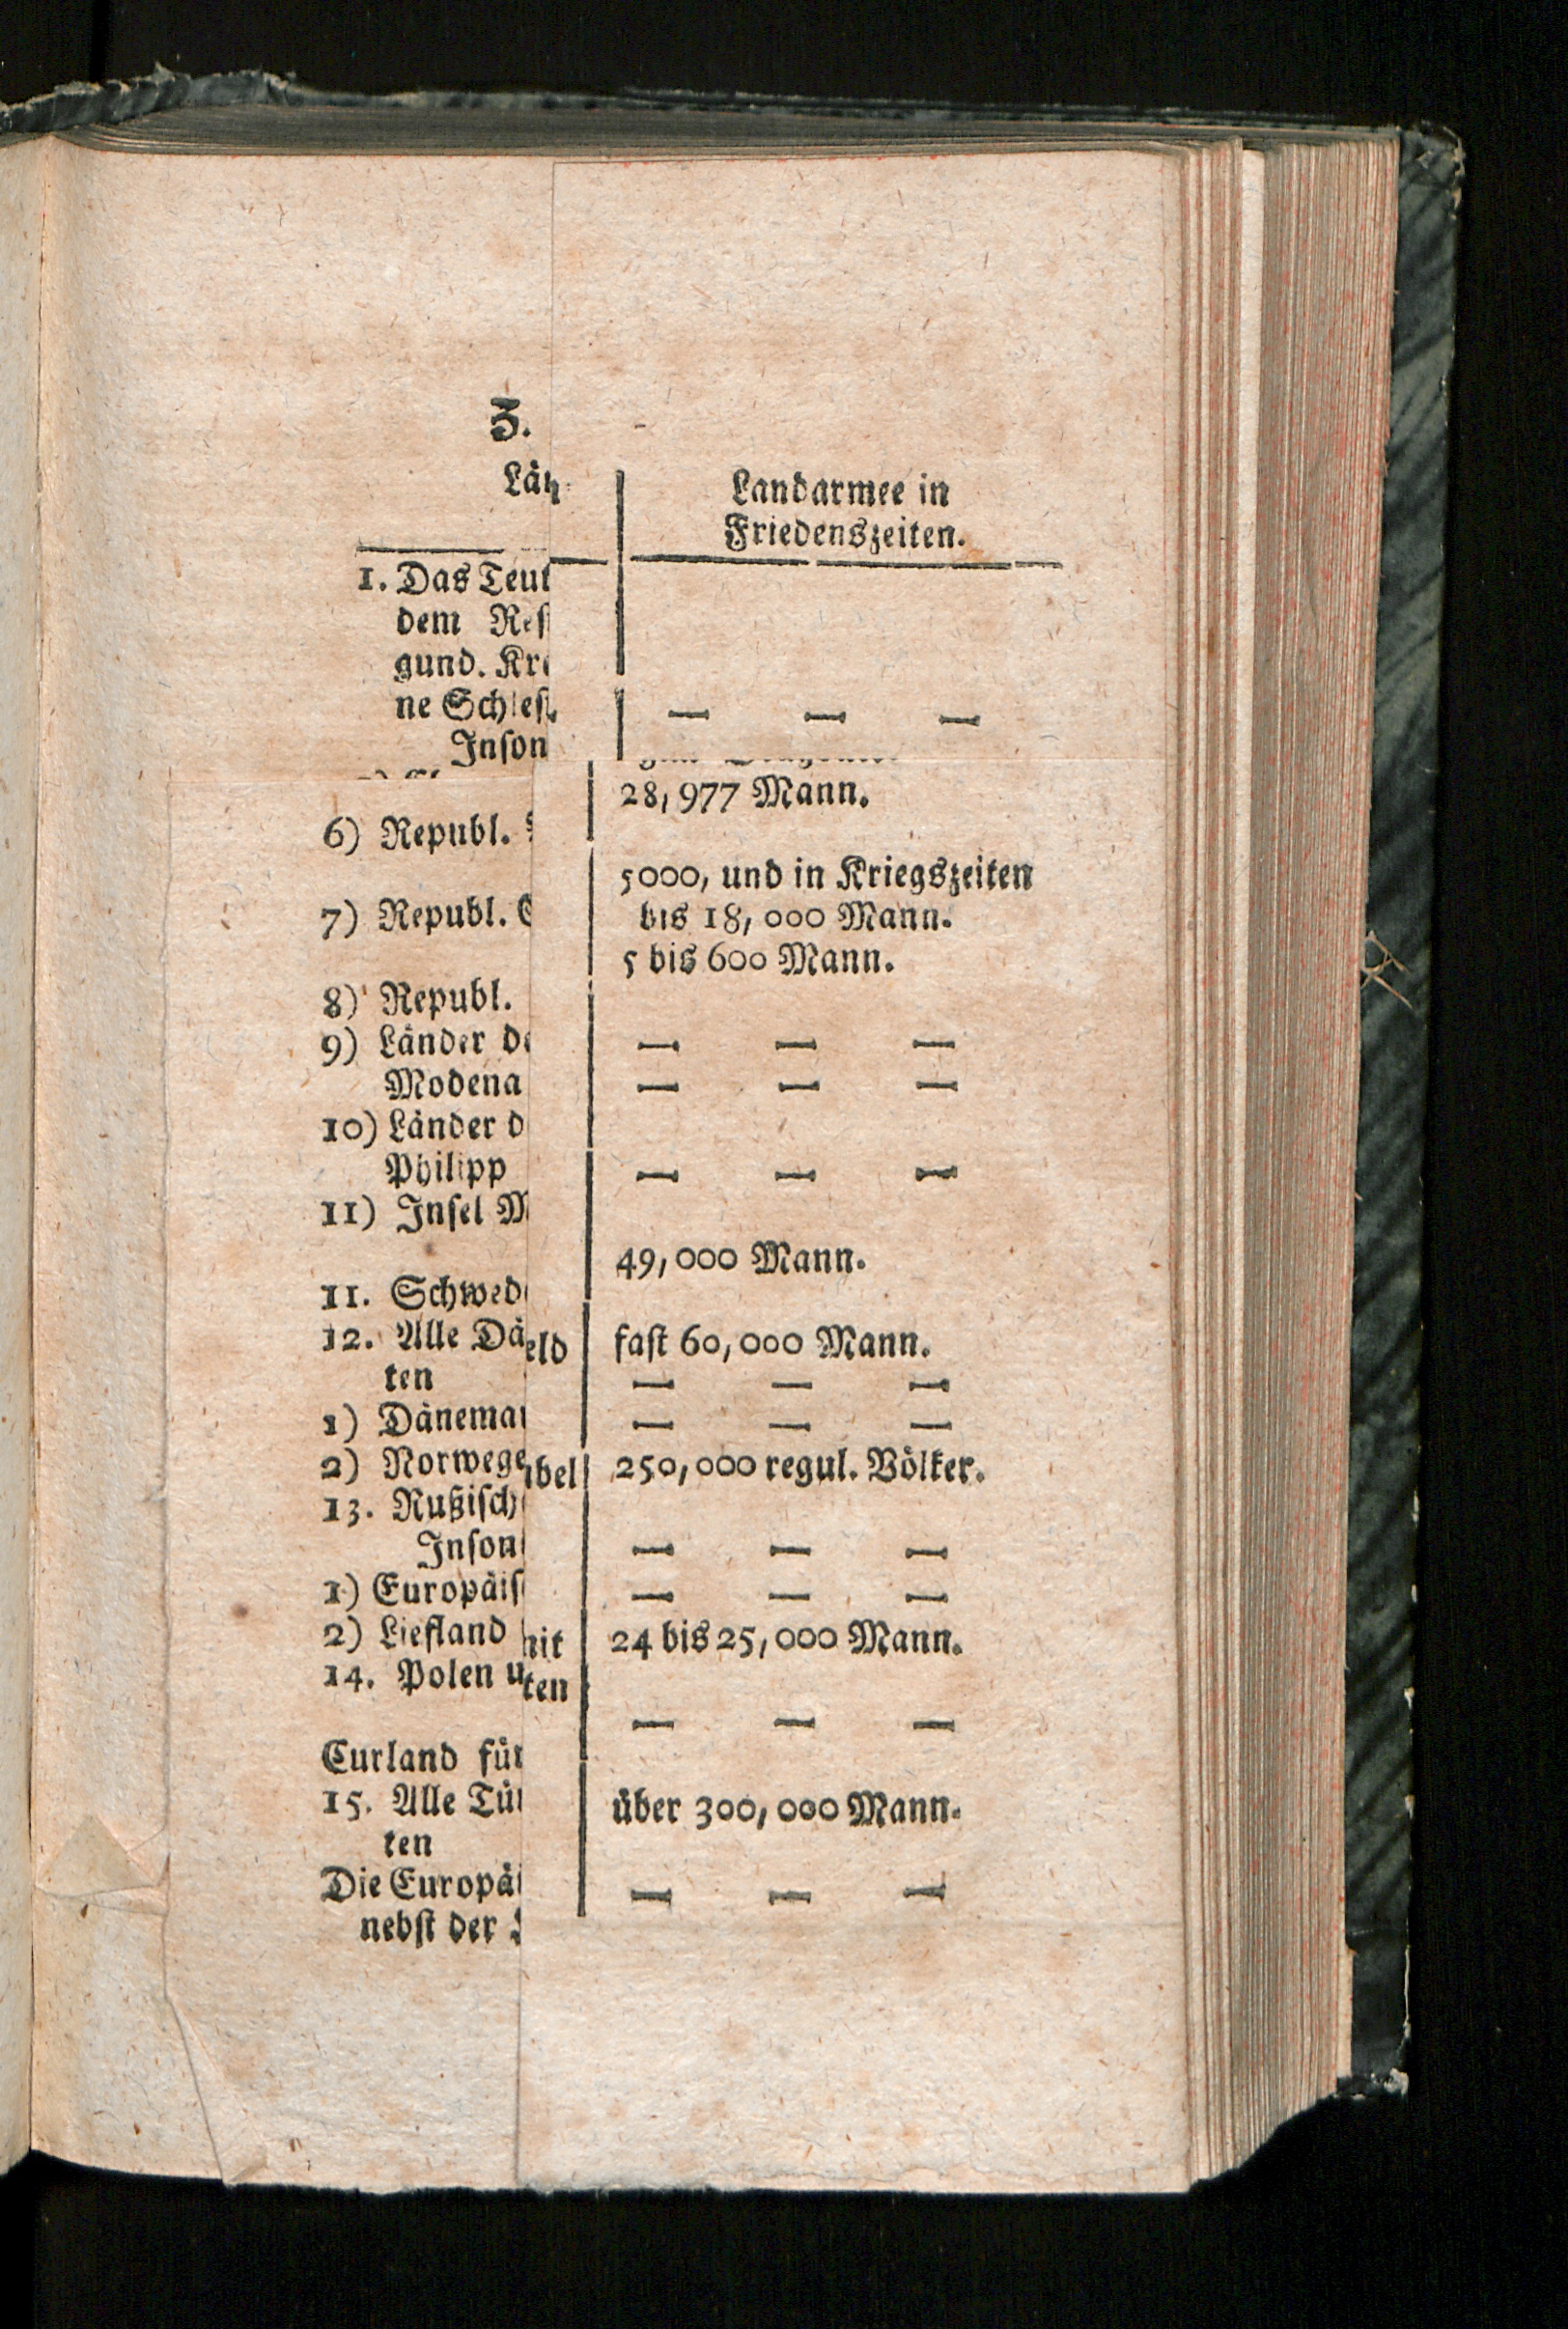 3.
Län
Landarmee in
Friedenszeiten.
1. Das Teut
dem Rest
gund. Kre
ne Schles.
— — —
Inson
28,977 Mann.
6) Republ.
5000, und in Kriegszeiten
7) Republ.
bis 18,000 Mann.
5 bis 600 Mann.
8) Republ.
9) Länder de
— — —
Modena
— — —
10) Länder d
Philipp
— — —
11) Insel M
49,000 Mann.
11. Schwed
12. Alle Dä
eld
fast 60,000 Mann.
ten
— — —
1) Dänemar
— — —
2) Norwege
ibel
250,000 regul. Völker.
13. Rußisch
Inson
— — —
1) Europäis
— — —
2) Liefland
mit
24 bis 25,000 Mann.
14. Polen u
ten
— — —
Curland für
15. Alle Tür
über 300,000 Mann.
ten
Die Europäi
— — —
nebst der